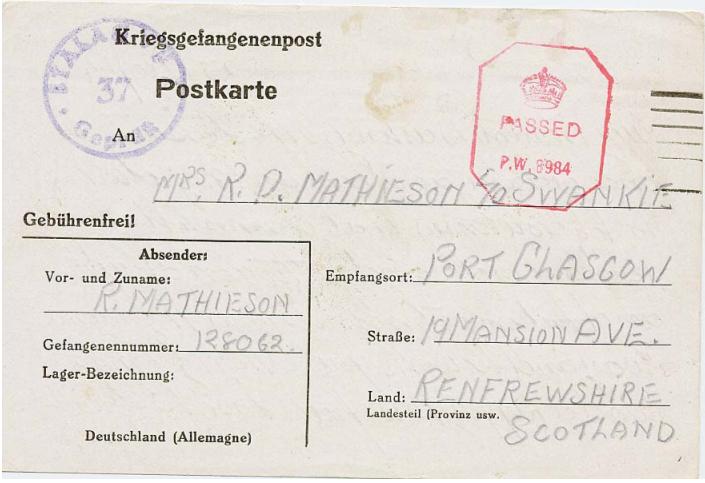 Kriegsgefangenenpost
37
Geprüft
Postkarte
PASSED
P.W. 8984
An
MRS. R. D. MATHIESON C/O SWANKIE
Gebührenfrei!
Absender:
Vor- und Zuname:
R. MATHIESON
Gefangenennummer: 128062.
Lager-Bezeichnung:
Deutschland (Allemagne)
Empfangsort: PORT GLASGOW
Straße: 19 MANSION AVE.
Land: RENFREWSHIRE
Landesteil (Provinz usw.
SCOTLAND